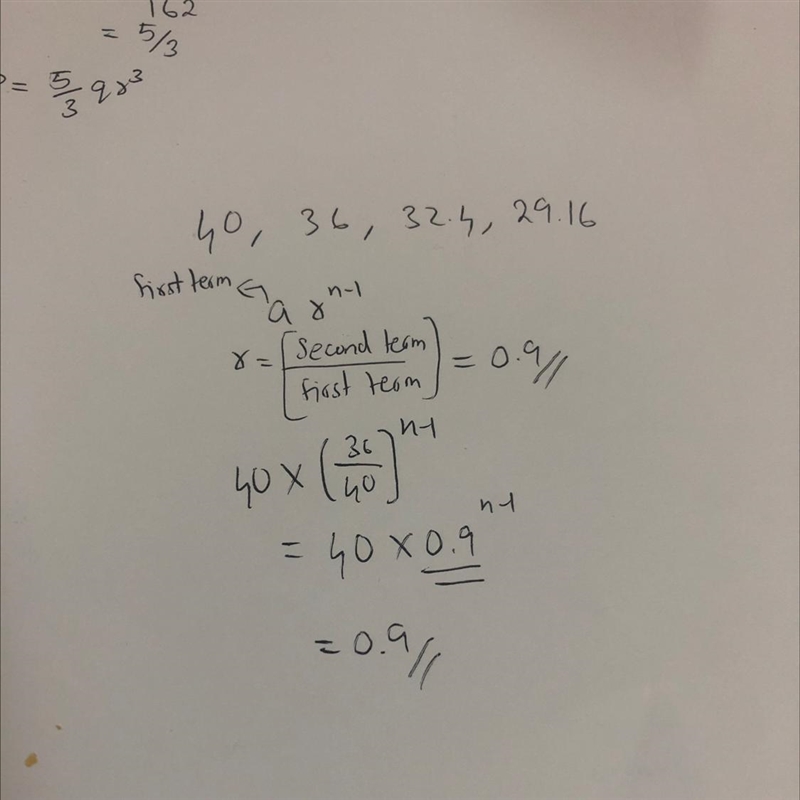 162
= 5/3
= 5/3 qr³
40, 36, 32.4, 29.16
first term ← a r^n-1
r = [second term / first term] = 0.9//
40 × (36/40)^n-1
= 40 × 0.9^n-1
= 0.9//